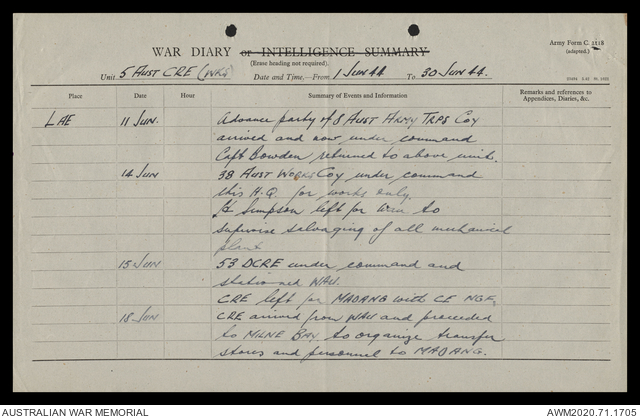 Army Form C. 2118
(adapted.)
WAR DIARY or INTELLIGENCE SUMMARY
(Erase heading not required).
Unit 5 AUST CRE (WKS) Date and Time,—From 1 JUN 44 To 30 JUN 44.
Place Date Hour Summary of Events and Information Remarks and references to Appendices, Diaries, &c.
LAE 11 JUN. Advance party of 8 AUST ARMY TRPS COY
arrived and now under command
Capt Bowden returned to above unit.
14 JUN 38 AUST WORKS COY under command
this H.Q. for works only.
Lt Simpson left for to
supervise salvaging of all mechanical
plant
15 JUN 53 DCRE under command and
stationed WAU.
CRE left for MADANG with CE NGF.
18 JUN CRE arrived from WAU and proceeded
to MILNE BAY to organize transfer
stores and personnel to MADANG.
AUSTRALIAN WAR MEMORIAL AWM2020.71.1705